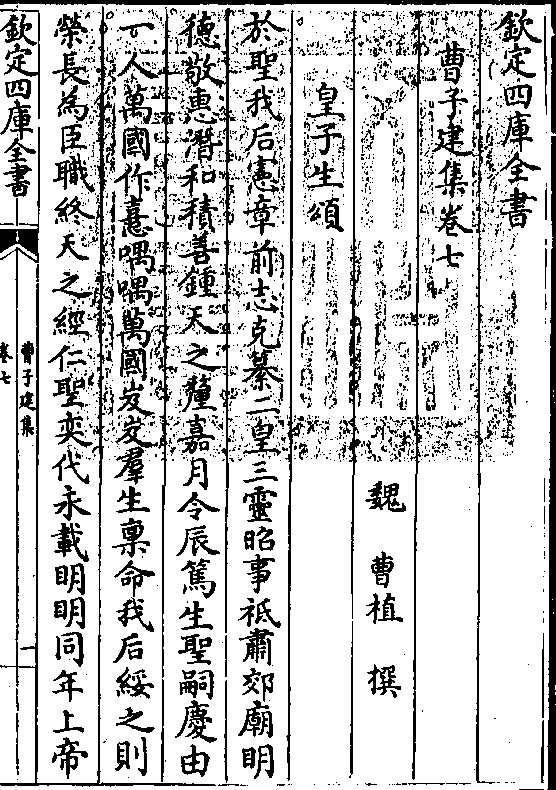 欽定四庫全書
曹子建集卷七
魏 曹植 撰
皇子生頌
於聖我后憲章前志克纂二皇三靈昭事祗肅郊廟明
德敬惠潛和積善鍾天之釐嘉月令辰篤生聖嗣慶由
一人萬國作憙喁喁萬國岌岌羣生稟命我后綏之則
榮長為臣職終天之經仁聖奕代永載明明同年上帝
欽定四庫全書
曹子建集
卷七
一